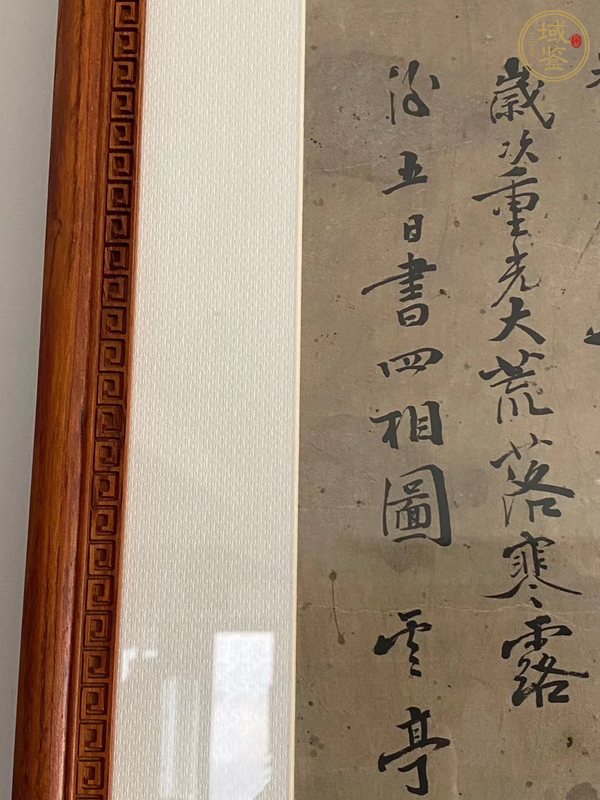 歲次重光大荒落寒露
後五日書四相圖 雲亭
域鉴